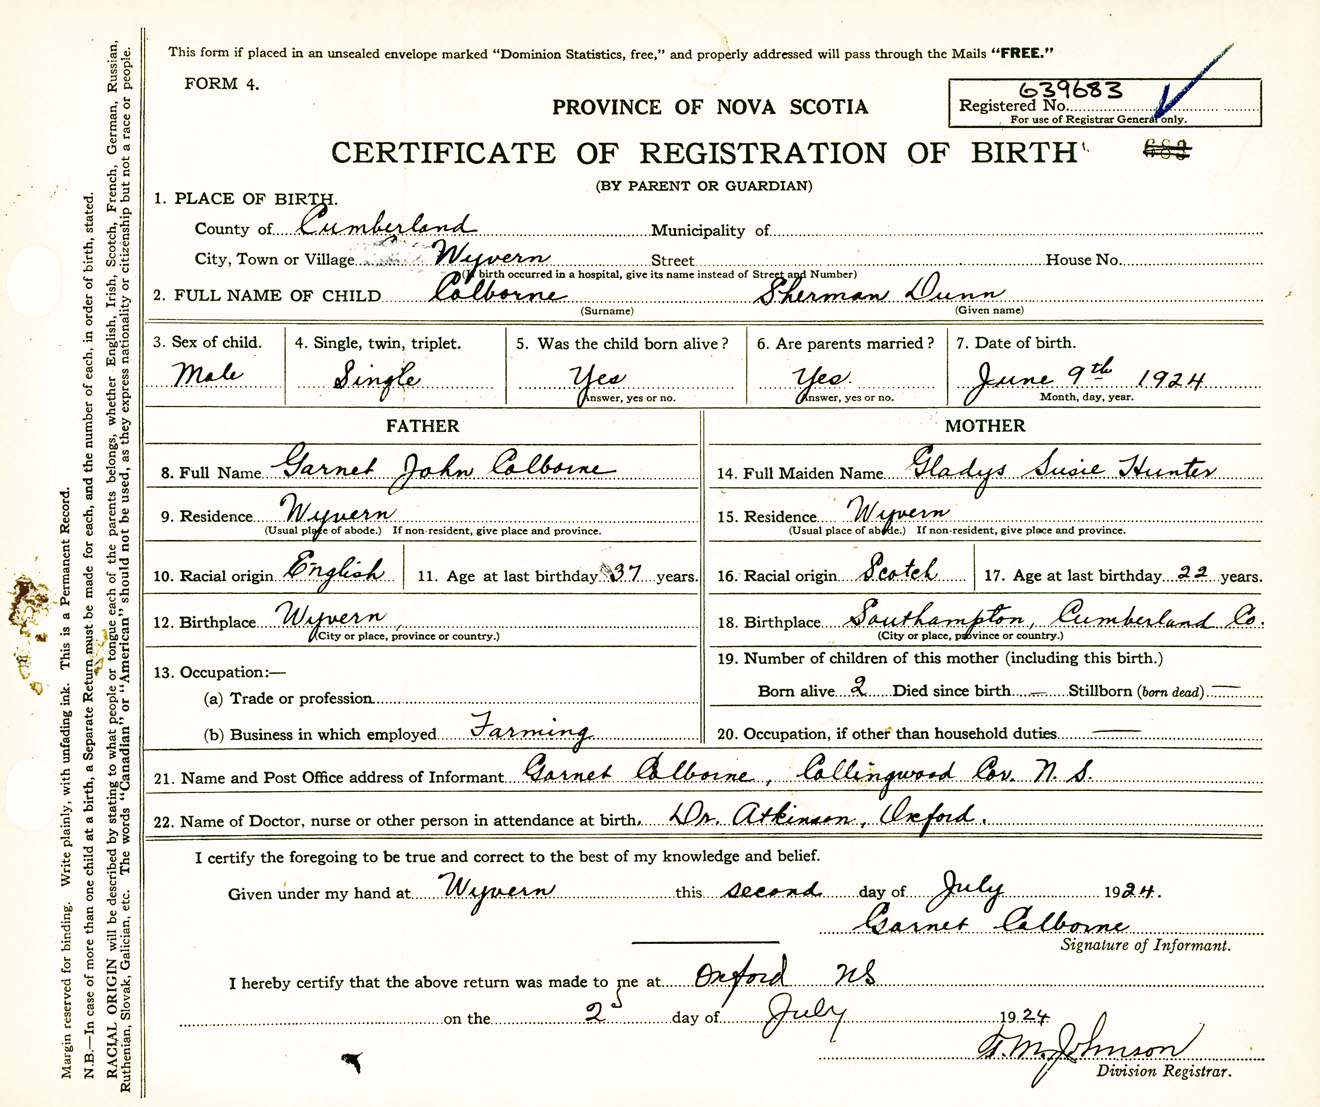 This form if placed in an unsealed envelope marked "Dominion Statistics, free," and properly addressed will pass through the Mails "FREE."
FORM 4.
639683
Registered No.
For use of Registrar General only.
PROVINCE OF NOVA SCOTIA
CERTIFICATE OF REGISTRATION OF BIRTH
683
(BY PARENT OR GUARDIAN)
1. PLACE OF BIRTH.
County of Cumberland Municipality of
City, Town or Village Wyvern Street House No.
(If birth occurred in a hospital, give its name instead of Street and Number)
2. FULL NAME OF CHILD Colborne Sherman Dunn
(Surname) (Given name)
3. Sex of child. 4. Single, twin, triplet. 5. Was the child born alive? 6. Are parents married? 7. Date of birth.
Male Single Yes Yes. June 9th 1924
Answer, yes or no. Answer, yes or no. Month, day, year.
FATHER MOTHER
8. Full Name Garnet John Colborne 14. Full Maiden Name Gladys Susie Hunter
9. Residence Wyvern 15. Residence Wyvern
(Usual place of abode.) If non-resident, give place and province. (Usual place of abode.) If non-resident, give place and province.
10. Racial origin English 11. Age at last birthday 37 years. 16. Racial origin Scotch 17. Age at last birthday 22 years.
12. Birthplace Wyvern, 18. Birthplace Southampton, Cumberland Co.
(City or place, province or country.) (City or place, province or country.)
13. Occupation:— 19. Number of children of this mother (including this birth.)
(a) Trade or profession Born alive 2 Died since birth — Stillborn (born dead) —
(b) Business in which employed Farming 20. Occupation, if other than household duties —
21. Name and Post Office address of Informant Garnet Colborne, Collingwood Cor. N.S.
22. Name of Doctor, nurse or other person in attendance at birth. Dr. Atkinson, Oxford.
I certify the foregoing to be true and correct to the best of my knowledge and belief.
Given under my hand at Wyvern this second day of July 1924.
Garnet Colborne
Signature of Informant.
I hereby certify that the above return was made to me at Oxford NS
on the 2d day of July 1924
T. M. Johnson
Division Registrar.
Margin reserved for binding. Write plainly, with unfading ink. This is a Permanent Record.
N.B.—In case of more than one child at a birth, a Separate Return must be made for each, and the number of each, in order of birth, stated.
RACIAL ORIGIN will be described by stating to what people or tongue each of the parents belongs, whether English, Irish, Scotch, French, German, Russian,
Ruthenian, Slovak, Galician, etc. The words "Canadian" or "American" should not be used, as they express nationality or citizenship but not a race or people.